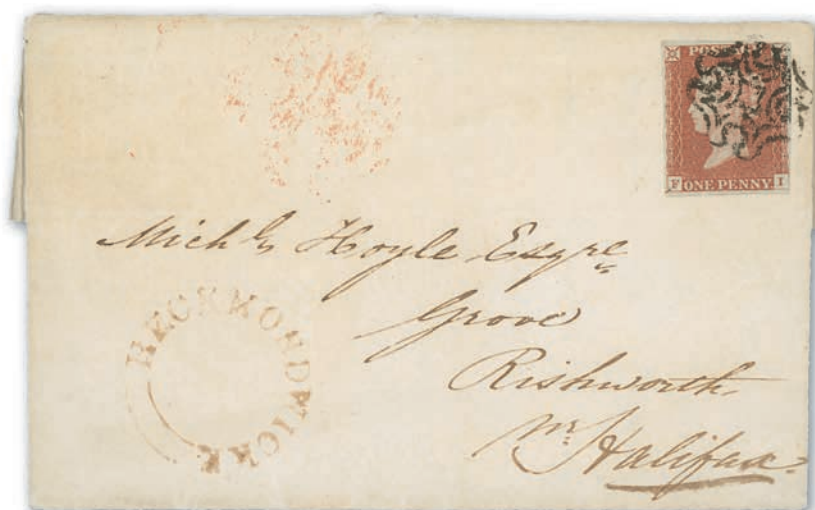 POSTAGE
F ONE PENNY I
Michl Hoyle Esqre
Grove
Rishworth
nr Halifax
HECKMONDWICKE